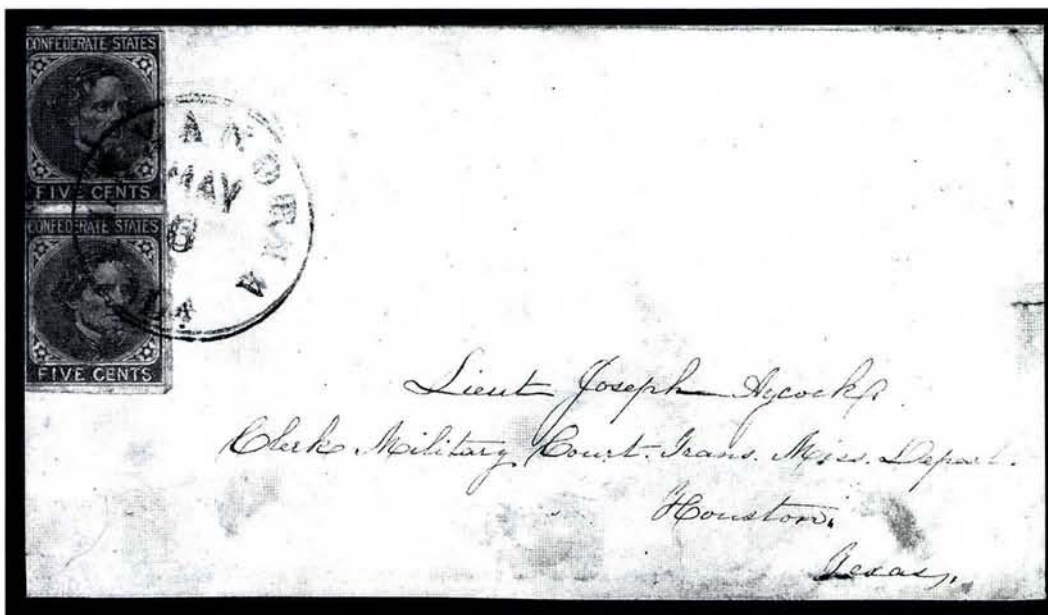 CONFEDERATE STATES
FIVE CENTS
MAY
6
LA
CONFEDERATE STATES
FIVE CENTS
Lieut Joseph Aycock,
Clerk Military Court. Trans. Miss. Depart.
Houston,
Texas,